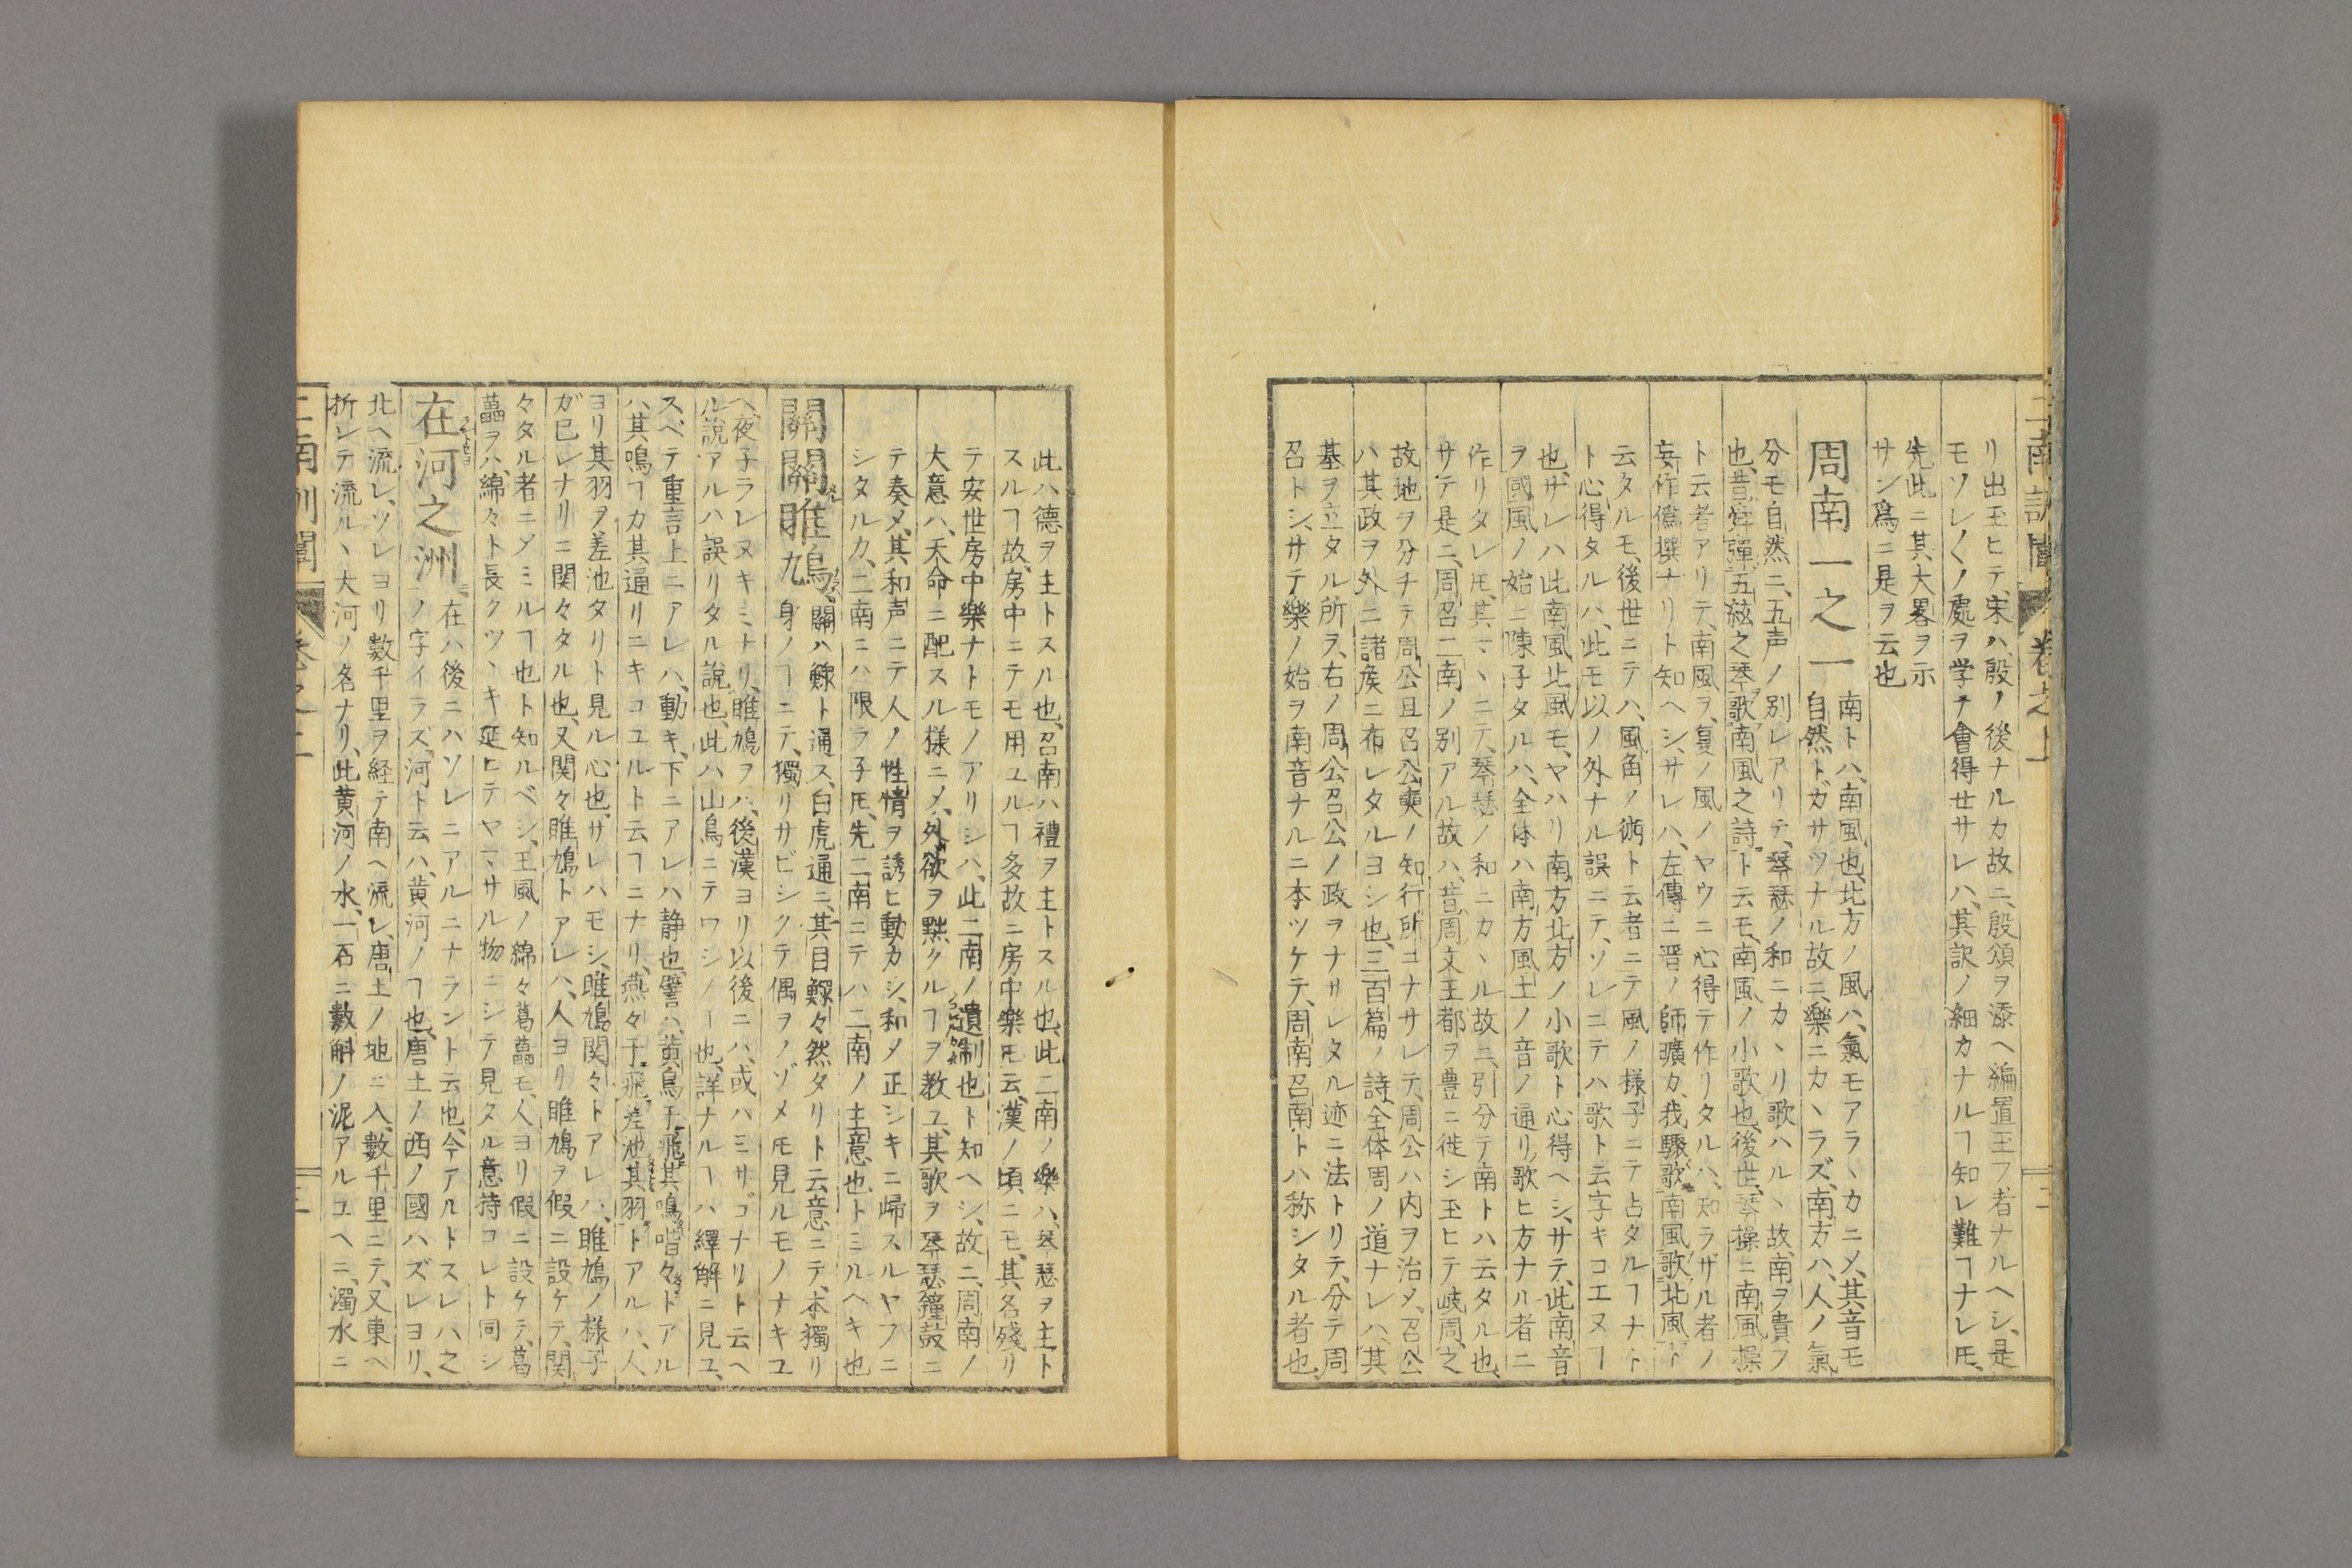 二南訓闡 卷之上
リ出玉ヒテ、宋ハ、殷ノ後ナルカ故ニ、殷頌ヲ添ヘ編置玉フ者ナルヘシ、是
モソレ〱ノ處ヲ学テ會得セサレハ、其訳ノ細カナルヿ知レ難ヿナレ𪜈、
先此ニ其大畧ヲ示
サン爲ニ是ヲ云也
周南一之一
南トハ、南風也、北方ノ風ハ、氣モアラヽカニ〆、其音モ
自然トガサツナル故ニ、樂ニカヽラズ、南方ハ、人ノ氣
分モ自然ニ、五声ノ別レアリテ、琴瑟ノ和ニカヽリ歌ハルヽ故、南ヲ貴フ
也、昔舜彈五絃之琴、歌南風之詩、ト云モ、南風ノ小歌也、後世、琴操ニ南風操
ト云者アリテ、南風ヲ、夏ノ風ノヤウニ心得テ作リタルハ、知ラザル者ノ
妄作僞撰ナリト知ヘシ、サレハ、左傳ニ晋ノ師曠カ、我驟歌南風、歌北風、ト
云タルモ、後世ニテハ、風角ノ術ト云者ニテ風ノ様子ニテ占タルヿナト
ト心得タルハ、此モ以ノ外ナル誤ニテ、ソレニテハ歌ト云字キコエヌヿ
也、サレハ此南風北風モ、ヤハリ南方北方ノ小歌ト心得ヘシ、サテ、此南音
ヲ國風ノ始ニ陳子タルハ、全体ハ南方風土ノ音ノ通リ、歌ヒ方ナル者ニ
作リタレ𪜈、其マヽニテ、琴瑟ノ和ニカヽル故ニ、引分テ南トハ云タル也、
サテ是ニ、周召二南ノ別アル故ハ、昔周文王都ヲ豊ニ徙シ玉ヒテ岐周之
故地ヲ分チテ周公旦召公奭ノ知行所ニナサレテ、周公ハ内ヲ治メ、召公
ハ其政ヲ外ニ諸矦ニ布レタルヨシ也、三百篇ノ詩、全体周ノ道ナレハ、其
基ヲ立タル所ヲ、右ノ周公召公ノ政ヲナサレタル迹ニ法トリテ、分テ周
召トシ、サテ樂ノ始ヲ南音ナルニ本ツケテ、周南召南トハ称シタル者也、
此ハ德ヲ主トスル也、召南ハ禮ヲ主トスル也、此二南ノ樂ハ、琴瑟ヲ主ト
スルヿ故、房中ニテモ用ユルヿ多故ニ房中樂𪜈云、漢ノ頃ニモ、其名殘リ
テ安世房中樂ナトモノアリシハ、此二南ノ遺制也ト知ヘシ、故ニ、周南ノ
大意ハ、天命ニ配スル様ニ〆、外欲ヲ黙クルヿヲ教ユ、其歌ヲ琴瑟鐘鼓ニ
テ奏メ、其和声ニテ人ノ性情ヲ誘ヒ動カシ、和〆正シキニ歸スルヤフニ
シタルカ、二南ニハ限ラ子𪜈、先二南ニテハ二南ノ主意也トミルヘキ也
關關雎鳩
關ハ鰥ト通ス、白虎通ニ、其目鰥々然タリト云意ニテ、本獨リ
身ノヿニテ、獨リサビシクテ偶ヲノゾメ𪜈見ルモノナキユ
ヘ、夜子ラレヌキミナリ、雎鳩ヲハ、後漢ヨリ以後ニハ、或ハミサゴナリト云ヘ
ル說アルハ誤リタル說也、此ハ山鳥ニテワシノヿ也、詳ナルヿハ繹解ニ見ユ、
スベテ重言上ニアレハ、動キ、下ニアレハ静也、譬ハ、黄鳥于飛、其鳴喈々、トアル
ハ、其鳴ヿカ其通リニキコユルト云ヿニナリ、燕々于飛、差池其羽、トアルハ、人
ヨリ其羽ヲ差池タリト見ル心也、サレハモシ、雎鳩関々トアレハ、雎鳩ノ様子
ガ已レナリニ関々タル也、又関々雎鳩トアレハ、人ヨリ雎鳩ヲ假ニ設ケテ、関
々タル者ニ〆ミルヿ也ト知ルベシ、王風ノ綿々葛藟モ、人ヨリ假ニ設ケテ、葛
藟ヲハ、綿々ト長クツヽキ延ヒテヤマサル物ニシテ見タル意持コレト同シ
在河之洲
在ハ後ニハソレニアルニナラント云也、今アルトスレハ之
ノ字イラズ、河ト云ハ、黄河ノヿ也、唐土ノ西ノ國ハズレヨリ、
北ヘ流レ、ソレヨリ數千里ヲ経テ南ヘ流レ、唐土ノ地ニ入、數千里ニテ、又東ヘ
折レテ流ルヽ大河ノ名ナリ、此黄河ノ水、一石ニ數斛ノ泥アルユヘニ、濁水ニ